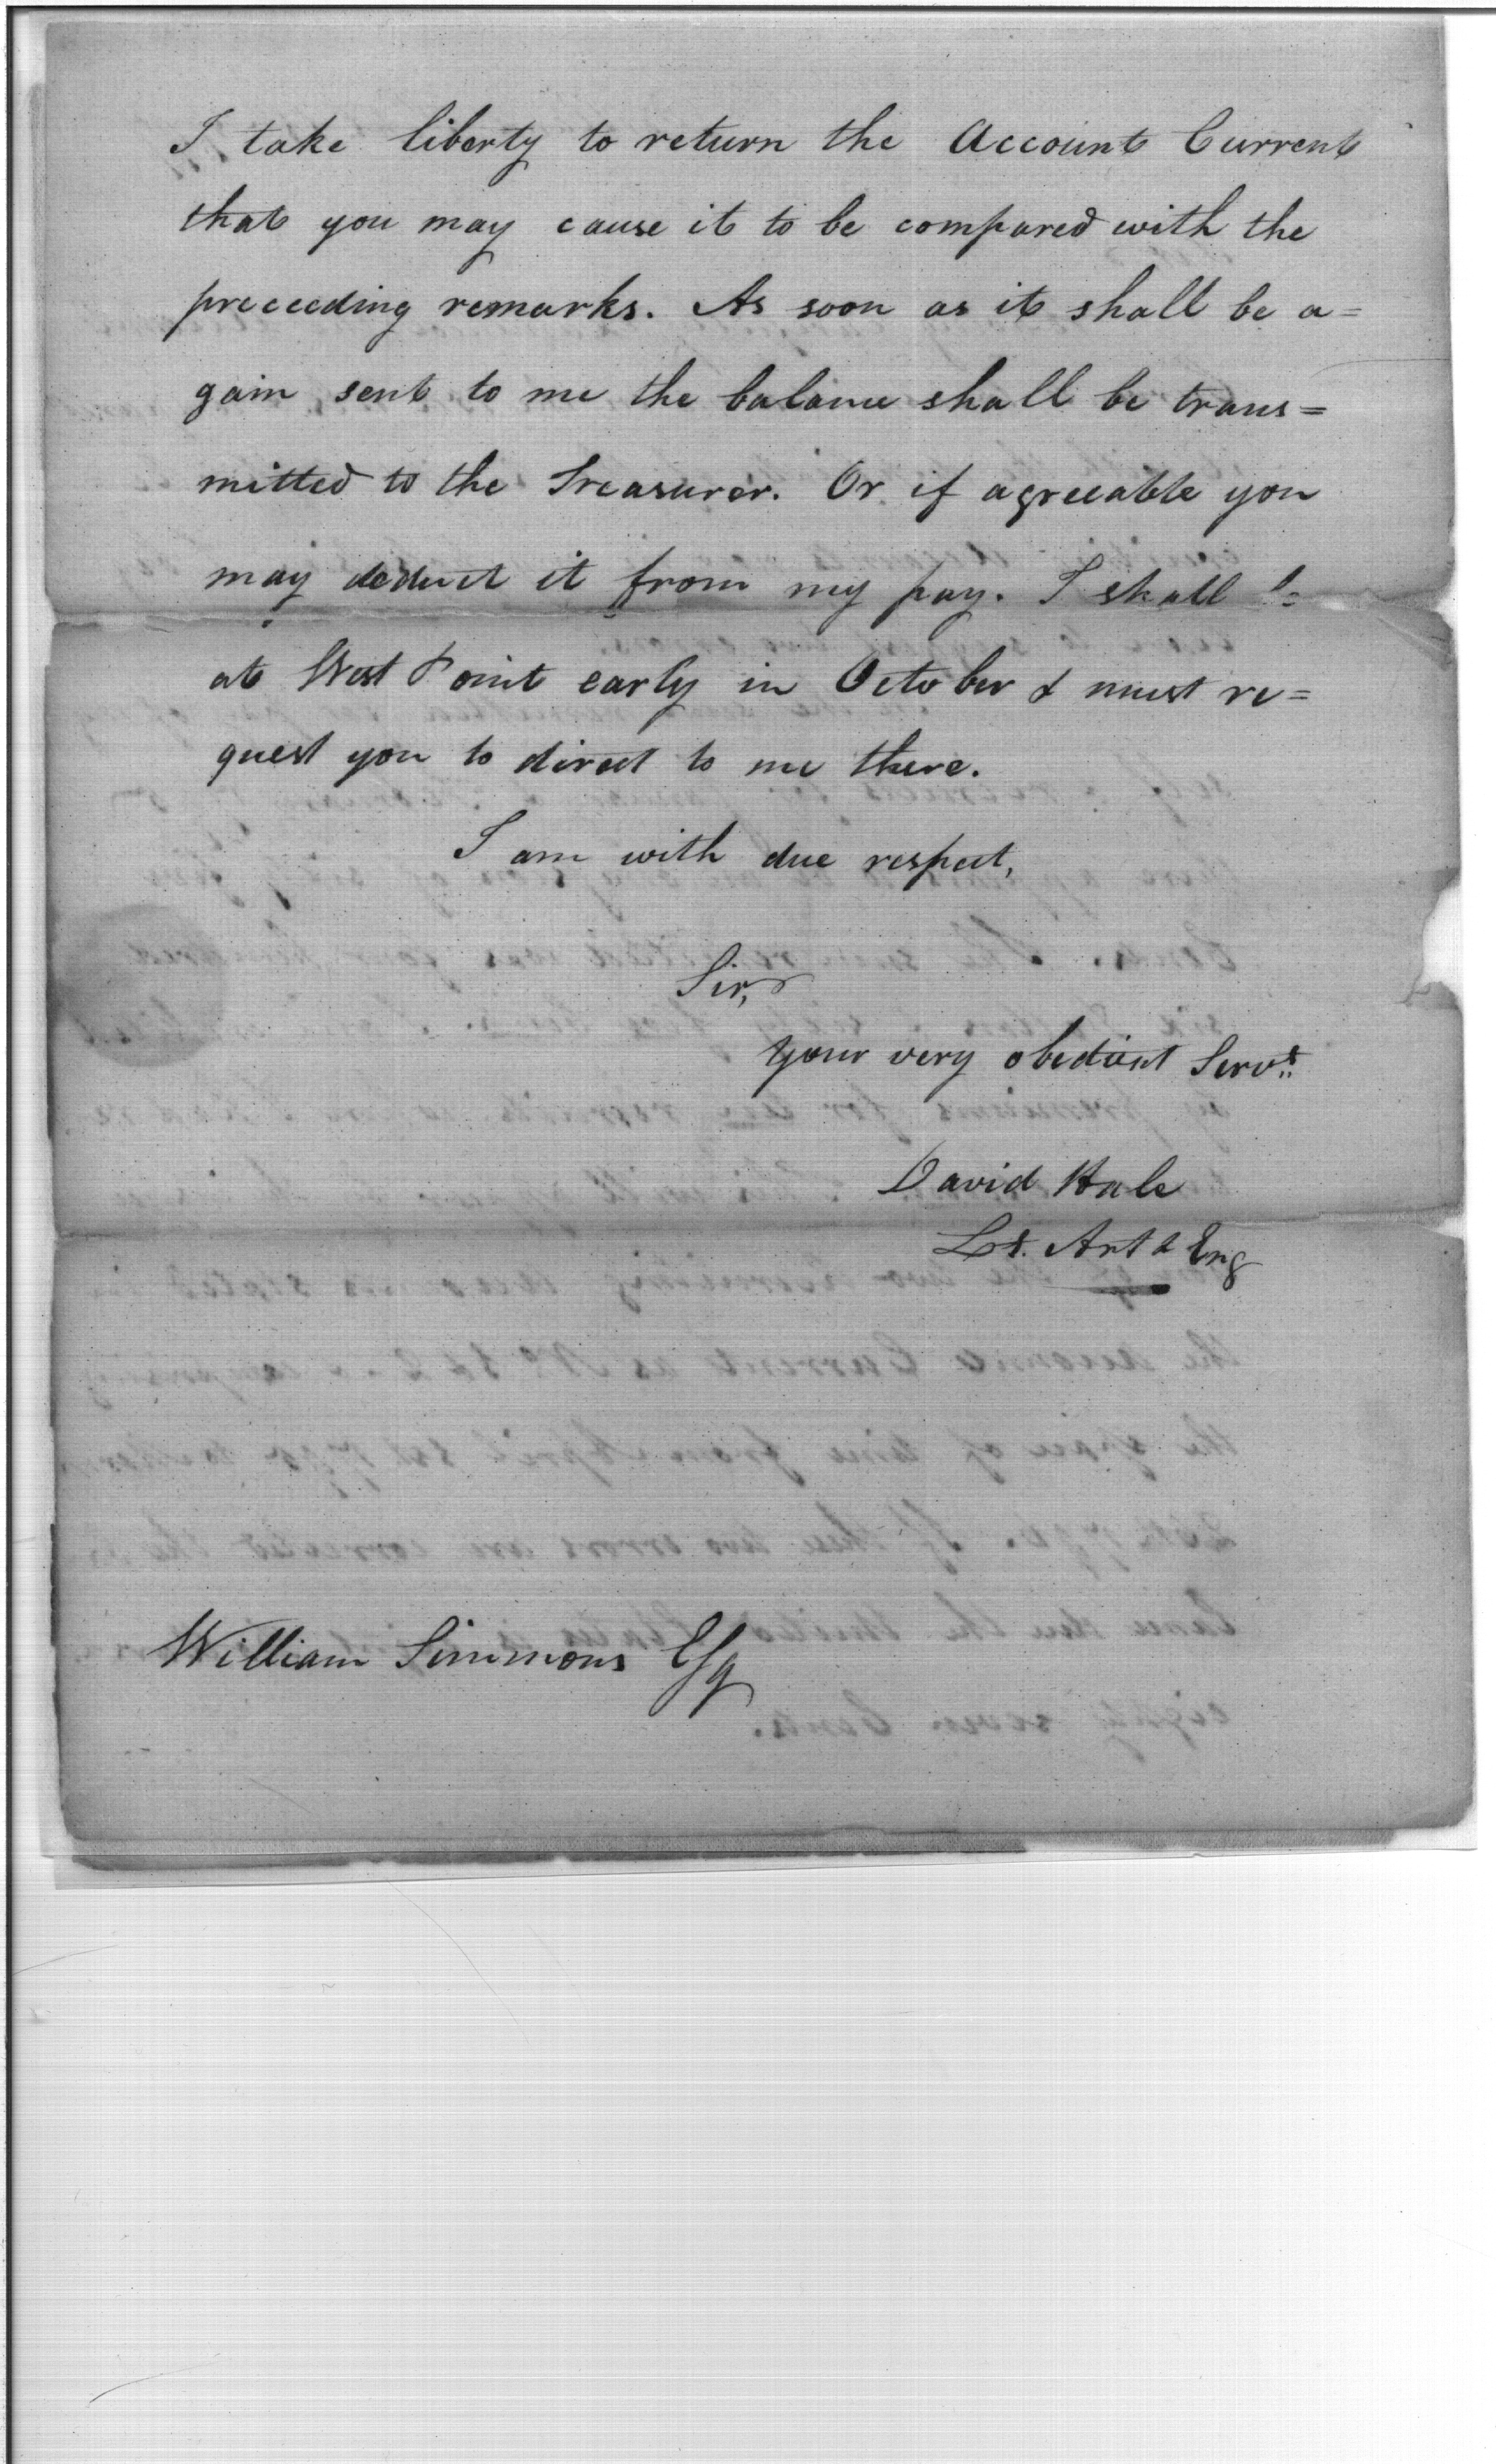 I take liberty to return the Account Current
that you may cause it to be compared with the
preceeding remarks. As soon as it shall be a=
gain sent to me the balance shall be trans=
mitted to the Treasurer. Or if agreeable you
may deduct it from my pay. I shall
at West Point early in October & must re=
quest you to direct to me there.
I am with due respect,
Sir,
your very obedient Servt.
David Hale
Lt. Art & Eng
William Simmons Esq